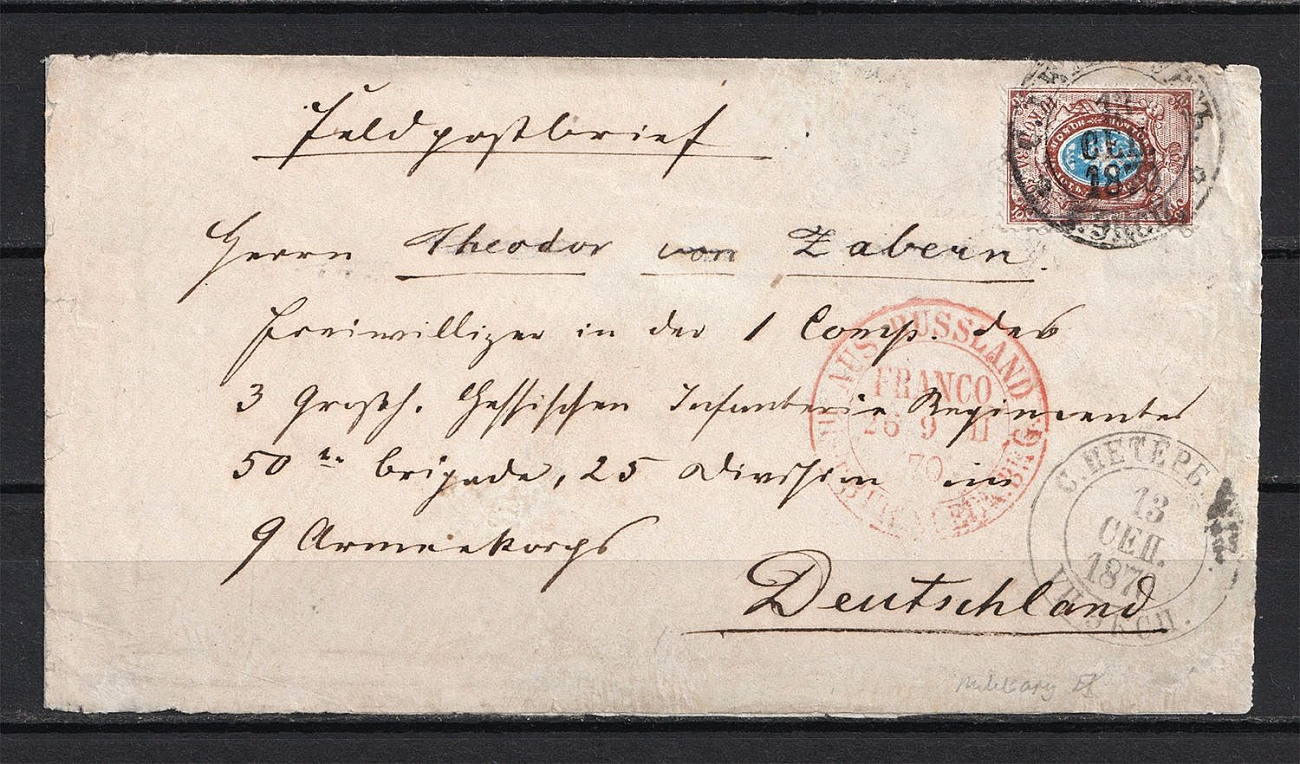 Feldpostbrief
Herrn Theodor von Zabern.
Freiwilliger in der 1 Comp. des
3 Großh. Hessischen Infanterie Regimentes
50ten Brigade, 25 Division im
9 Armeekorps
Deutschland
СЕП.
1870
AUS RUSSLAND
FRANCO
26 9 II
70
С.ПЕТЕРБ.
13
СЕП.
1870
military